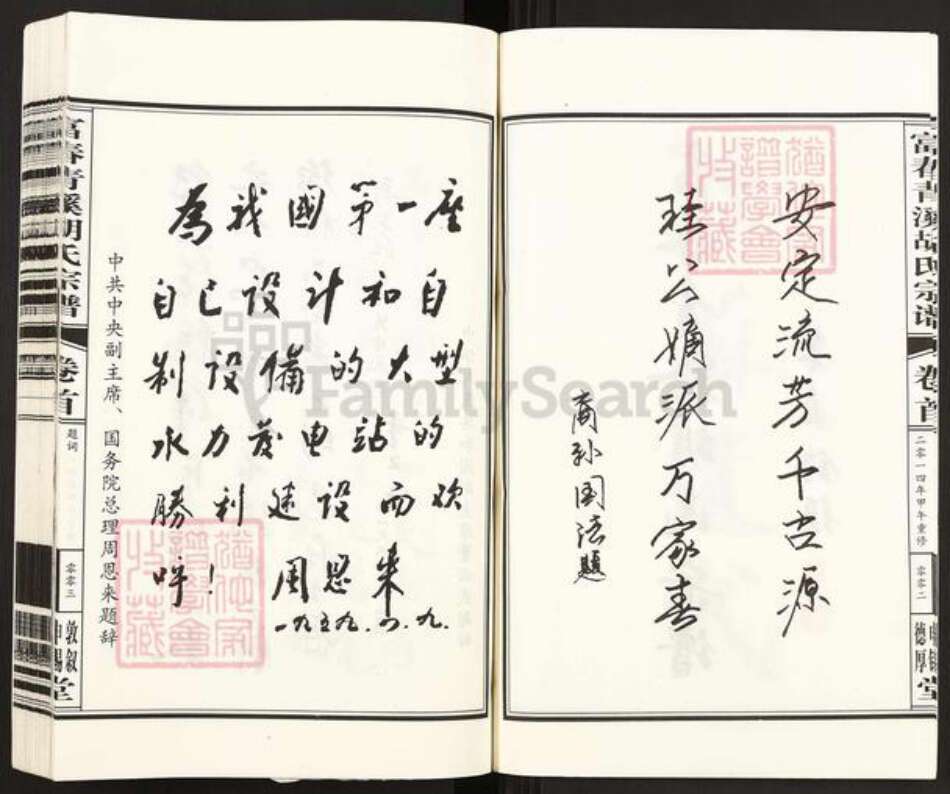 富春青溪胡氏宗谱
卷首
二零一四年甲午重修
零零二
德厚
堂
安定流芳千古源
琺公嫡派万家春
裔孙国法题
中共中央副主席、国务院总理周恩来题辞
為我國第一座
自己设计和自
制设備的大型
水力发电站的
勝利建设而欢
呼！
周恩来
一九五九.四.九.
富春青溪胡氏宗谱
卷首
题词
零零三
敦叙
申锡
堂
FamilySearch
猶他家
譜學會
收藏
猶他家
譜學會
收藏